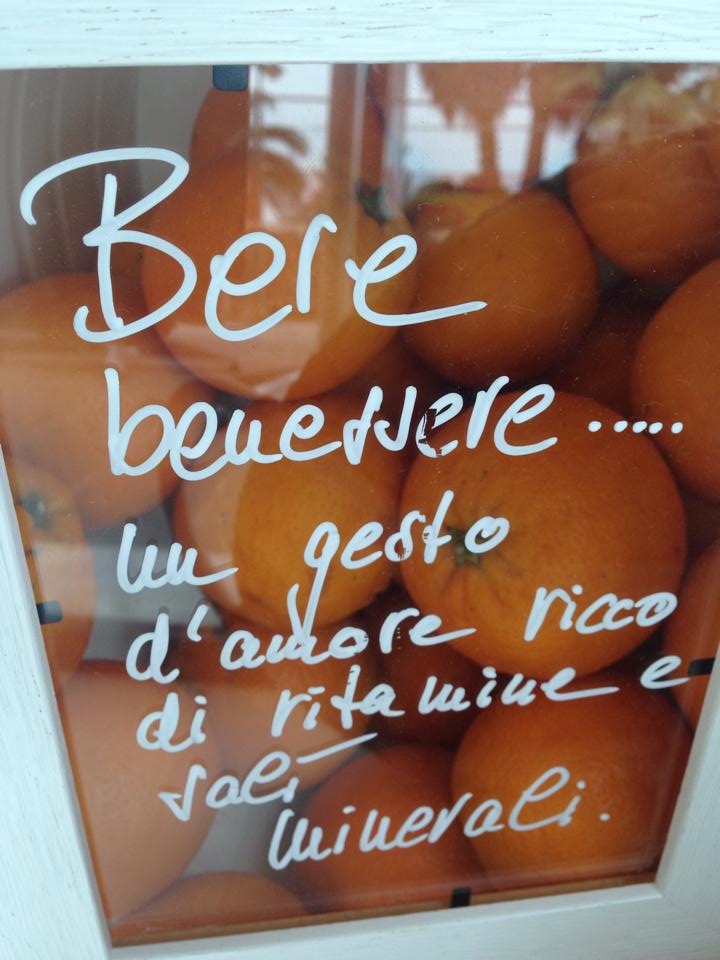 Bere
benessere.....
un gesto
d'amore ricco
di vitamine e
sali
minerali.